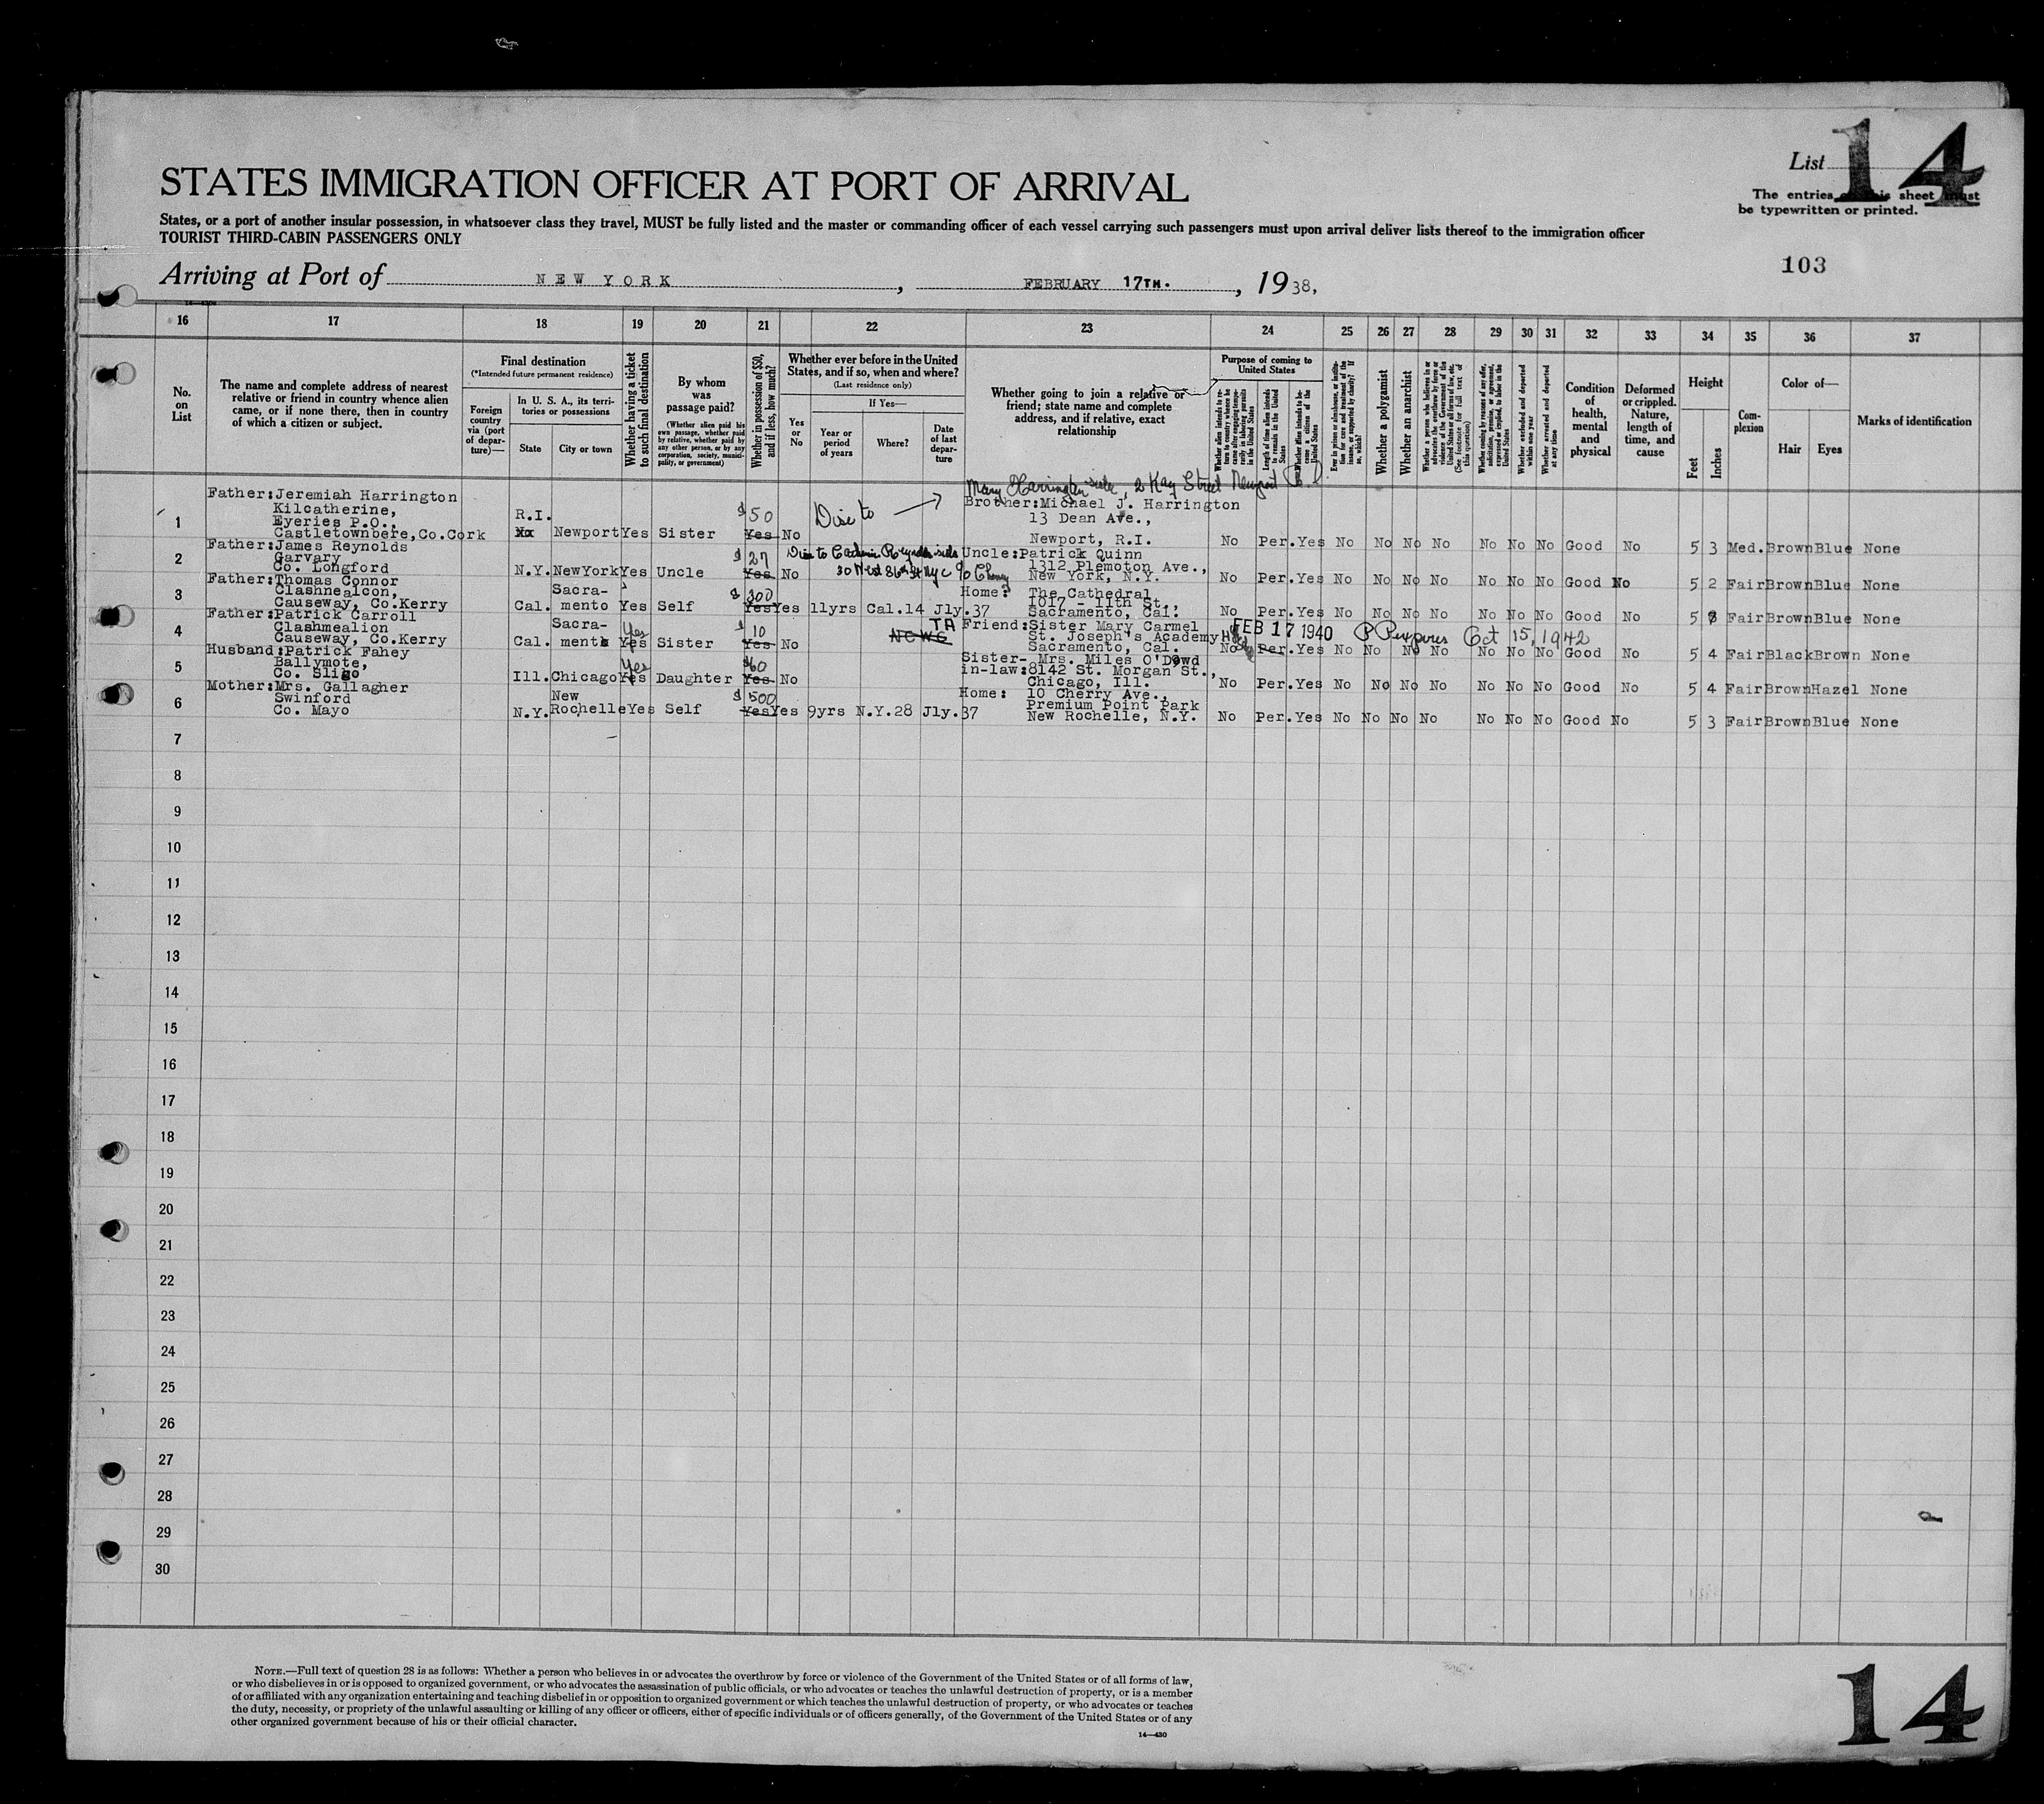 List 14
The entries on this sheet must
be typewritten or printed.
STATES IMMIGRATION OFFICER AT PORT OF ARRIVAL
States, or a port of another insular possession, in whatsoever class they travel, MUST be fully listed and the master or commanding officer of each vessel carrying such passengers must upon arrival deliver lists thereof to the immigration officer
TOURIST THIRD-CABIN PASSENGERS ONLY
103
Arriving at Port of NEW YORK, FEBRUARY 17TH., 1938,
16 17 18 19 20 21 22 23 24 25 26 27 28 29 30 31 32 33 34 35 36 37
No. on List
The name and complete address of nearest relative or friend in country whence alien came, or if none there, then in country of which a citizen or subject.
Final destination
(*Intended future permanent residence)
Foreign country via (port of departure)—
In U. S. A., its territories or possessions
State
City or town
Whether having a ticket to such final destination
By whom was passage paid?
(Whether alien paid his own passage, whether paid by relative, whether paid by any other person, or by any corporation, society, municipality, or government)
Whether in possession of $50, and if less, how much?
Whether ever before in the United States, and if so, when and where?
(Last residence only)
Yes or No
If Yes—
Year or period of years
Where?
Date of last departure
Whether going to join a relative or friend; state name and complete address, and if relative, exact relationship
Purpose of coming to United States
Whether alien intends to return to country whence he came after engaging temporarily in laboring pursuits in the United States
Length of time alien intends to remain in the United States
Whether alien intends to become a citizen of the United States
Ever in prison or almshouse, or institution for care and treatment of the insane, or supported by charity? If so, which?
Whether a polygamist
Whether an anarchist
Whether a person who believes in or advocates the overthrow by force or violence of the Government of the United States or all forms of law, etc. (See footnote for full text of this question)
Whether coming by reason of any offer, solicitation, promise, or agreement, expressed or implied, to labor in the United States
Whether excluded and deported within one year
Whether arrested and deported at any time
Condition of health, mental and physical
Deformed or crippled. Nature, length of time, and cause
Height
Feet
Inches
Complexion
Color of—
Hair
Eyes
Marks of identification
Mary Harrington 2 Kay Street Newport R.I.
1 Father:Jeremiah Harrington
Kilcatherine,
Eyeries P.O.,
Castletownbere,Co.Cork
R.I. Newport Yes Sister $50 Yes No
Brother:Michael J. Harrington
13 Dean Ave.,
Newport, R.I.
No Per. Yes No No No No No No No Good No 5 3 Med. Brown Blue None
2 Father:James Reynolds
Garvary
Co. Longford
N.Y. NewYork Yes Uncle $27 Yes No
30 West 86th St NYC
Uncle:Patrick Quinn
1312 Plemoton Ave.,
New York, N.Y.
No Per. Yes No No No No No No No Good No 5 2 Fair Brown Blue None
3 Father:Thomas Connor
Clashnealcon,
Causeway, Co.Kerry
Cal. Sacramento Yes Self $300 Yes Yes 11yrs Cal. 14 Jly.37
Home: The Cathedral
1017 - 11th St.
Sacramento, Cal.
No Per. Yes No No No No No No No Good No 5 8 Fair Brown Blue None
4 Father:Patrick Carroll
Clashmealion
Causeway, Co.Kerry
Cal. Sacramento Yes Yes Sister $10 Yes No
TA
NCWC
Friend:Sister Mary Carmel
St. Joseph's Academy
Sacramento, Cal.
FEB 17 1940 PP expires Oct 15, 1942
No Per. Yes No No No No No No No Good No 5 4 Fair Black Brown None
5 Husband:Patrick Fahey
Ballymote,
Co. Sligo
Ill. Chicago Yes Yes Daughter $60 Yes No
Sister-in-law: Mrs. Miles O'Dowd
8142 St. Morgan St.,
Chicago, Ill.
No Per. Yes No No No No No No No Good No 5 4 Fair Brown Hazel None
6 Mother:Mrs. Gallagher
Swinford
Co. Mayo
N.Y. New Rochelle Yes Self $500 Yes Yes 9yrs N.Y. 28 Jly.37
Home: 10 Cherry Ave.,
Premium Point Park
New Rochelle, N.Y.
No Per. Yes No No No No No No No Good No 5 3 Fair Brown Blue None
7
8
9
10
11
12
13
14
15
16
17
18
19
20
21
22
23
24
25
26
27
28
29
30
NOTE.—Full text of question 28 is as follows: Whether a person who believes in or advocates the overthrow by force or violence of the Government of the United States or of all forms of law,
or who disbelieves in or is opposed to organized government, or who advocates the assassination of public officials, or who advocates or teaches the unlawful destruction of property, or is a member
of or affiliated with any organization entertaining and teaching disbelief in or opposition to organized government or which teaches the unlawful destruction of property, or who advocates or teaches
the duty, necessity, or propriety of the unlawful assaulting or killing of any officer or officers, either of specific individuals or of officers generally, of the Government of the United States or of any
other organized government because of his or their official character.
14—430
14